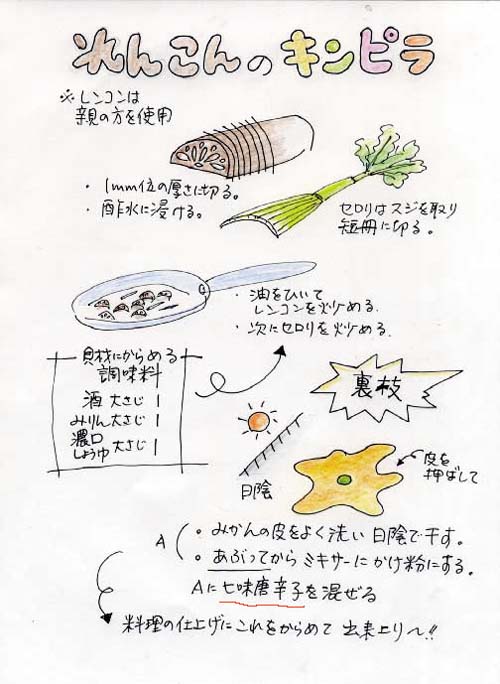 れんこんのキンピラ
※レンコンは
親の方を使用
・1mm位の厚さに切る。
・酢水に浸ける。
セロリはスジを取り
短冊に切る。
・油をひいて
レンコンを炒める.
・次にセロリを炒める.
具材にからめる
調味料
酒 大さじ 1
みりん大さじ 1
濃口
しょうゆ 大さじ 1
裏技
日陰
皮を
押ばして
A
・みかんの皮をよく洗い 日陰で干す。
・あぶってから ミキサーにかけ粉にする。
Aに七味唐辛子を混ぜる
料理の仕上げにこれをからめて 出来上り〜!!